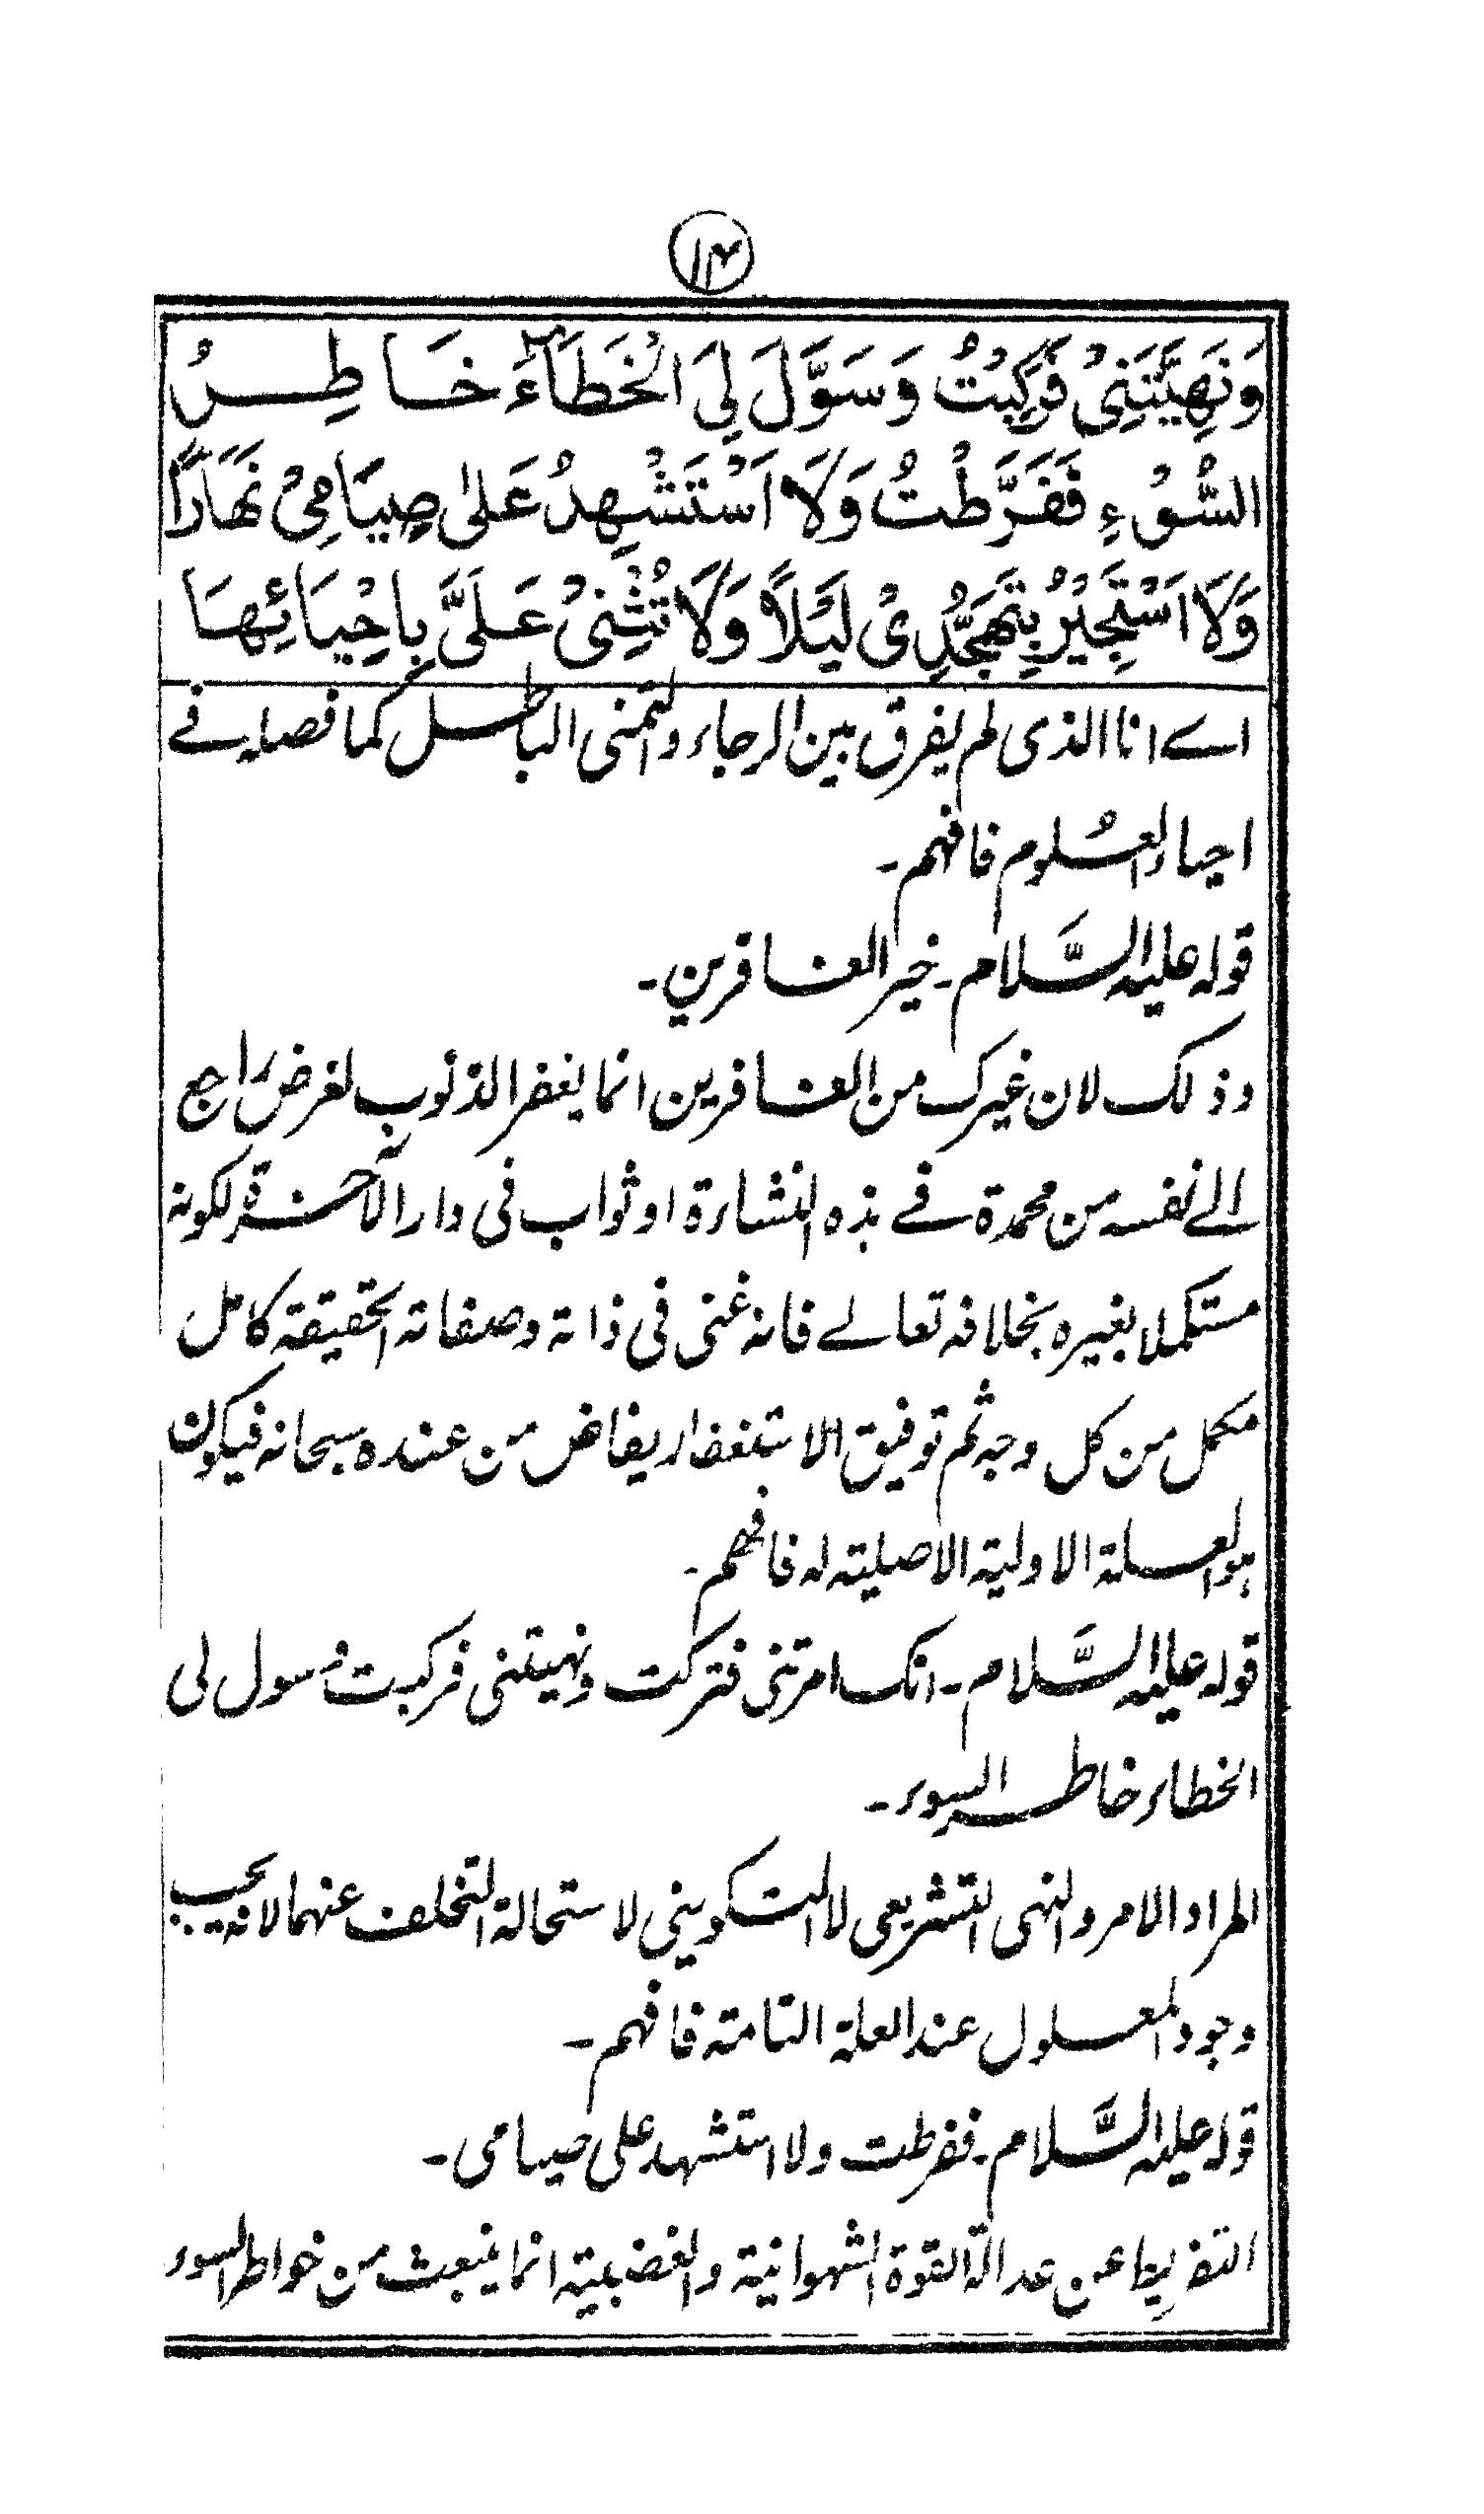 ١١٢
وَنَهِيَّتَنِيْ فَرَكِبْتُ وَسَوَّلَ لِيَ الْخَطَآءَ خَاطِرُ
السُّوْءِ فَفَرَّطْتُ وَلَا اَسْتَشْهِدُ عَلٰى صِيَامِيْ نَهَارًا
وَّلَا اَسْتَجِيْرُ بِتَهَجُّدِيْ لَيْلًا وَلَا تُثْنِيْ عَلَيَّ بِاِحْيَائِهَا
اے انا الذی لم یفرق بین الرجاء والتمنی الباطل کما فصلہ فے
احیاء العلوم فافہم۔
قولہ علیہ السَّلام۔ خیر الغافرین۔
وذلک لان غیرک من الغافرین انما یغفر الذنوب لغرض راجع
الے نفسہ من محمدۃ فے ہذہ النشارۃ او ثواب فی دار الآخرۃ لکونہ
مستکملا بغیرہ بخلافہ تعالے فانہ غنی فی ذاتہ وصفاتہ الحقیقۃ کامل
مکمل من کل وجہ ثم توفیق الاستغفار یفاض من عندہ سبحانہ فیکون
ہو العلۃ الاولیۃ الاصلیتہ لہ فافہم۔
قولہ علیہ السَّلام۔ انک امرتنی فترکت ونہیتنی فرکبت وسول لی
الخطاء خاطر السوء۔
المراد الامر والنہی التشریعی لا التکوینی لاستحالۃ التخلف عنہما لانہ یجب
وجود المعلول عند العلۃ التامتہ فافہم۔
قولہ علیہ السَّلام۔ ففرطت ولا استشہد علی صیامی۔
التفریط عن عدالۃ القوۃ الشہوانیۃ والغضبیتہ انما ینبعث من خواطر السوء